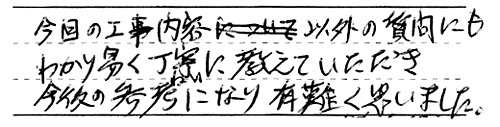 今回の工事内容以外の質問にも
わかり易く丁寧に教えていただき
今後の参考になり有難く思いました。